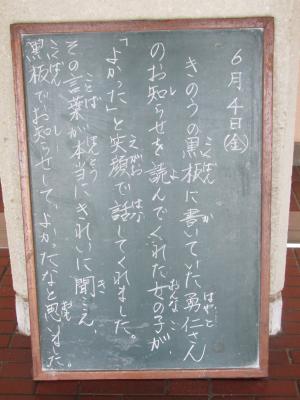 6月4日(金)
きのうの黒板に書いていた勇仁さん
のお知らせを読んでくれた女の子が、
「よかった」と笑顔で話してくれました。
その言葉が本当にきれいに聞こえ
黒板でお知らせして、よかったなと思いました。